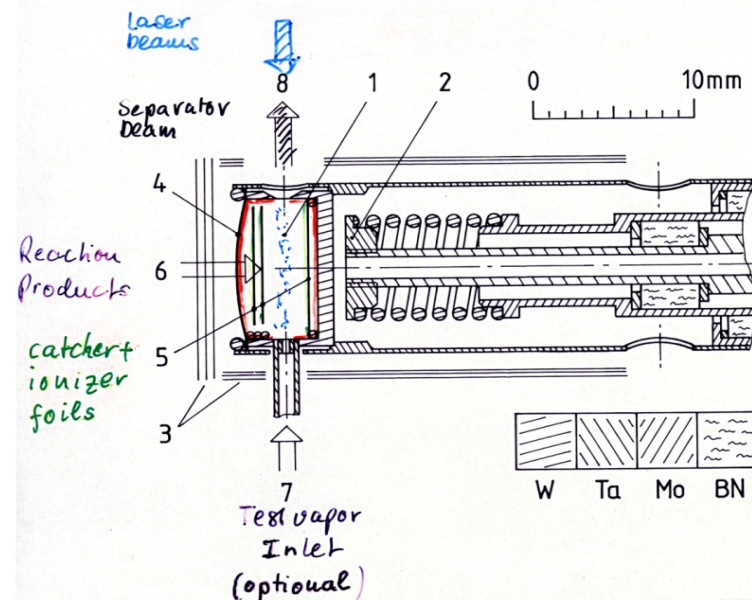 Laser
beams
8
1
2
0
10mm
Separator
beam
4
Reaction
Products
6
catcher+
ionizer
foils
5
3
7
Test vapor
Inlet
(optional)
W
Ta
Mo
BN